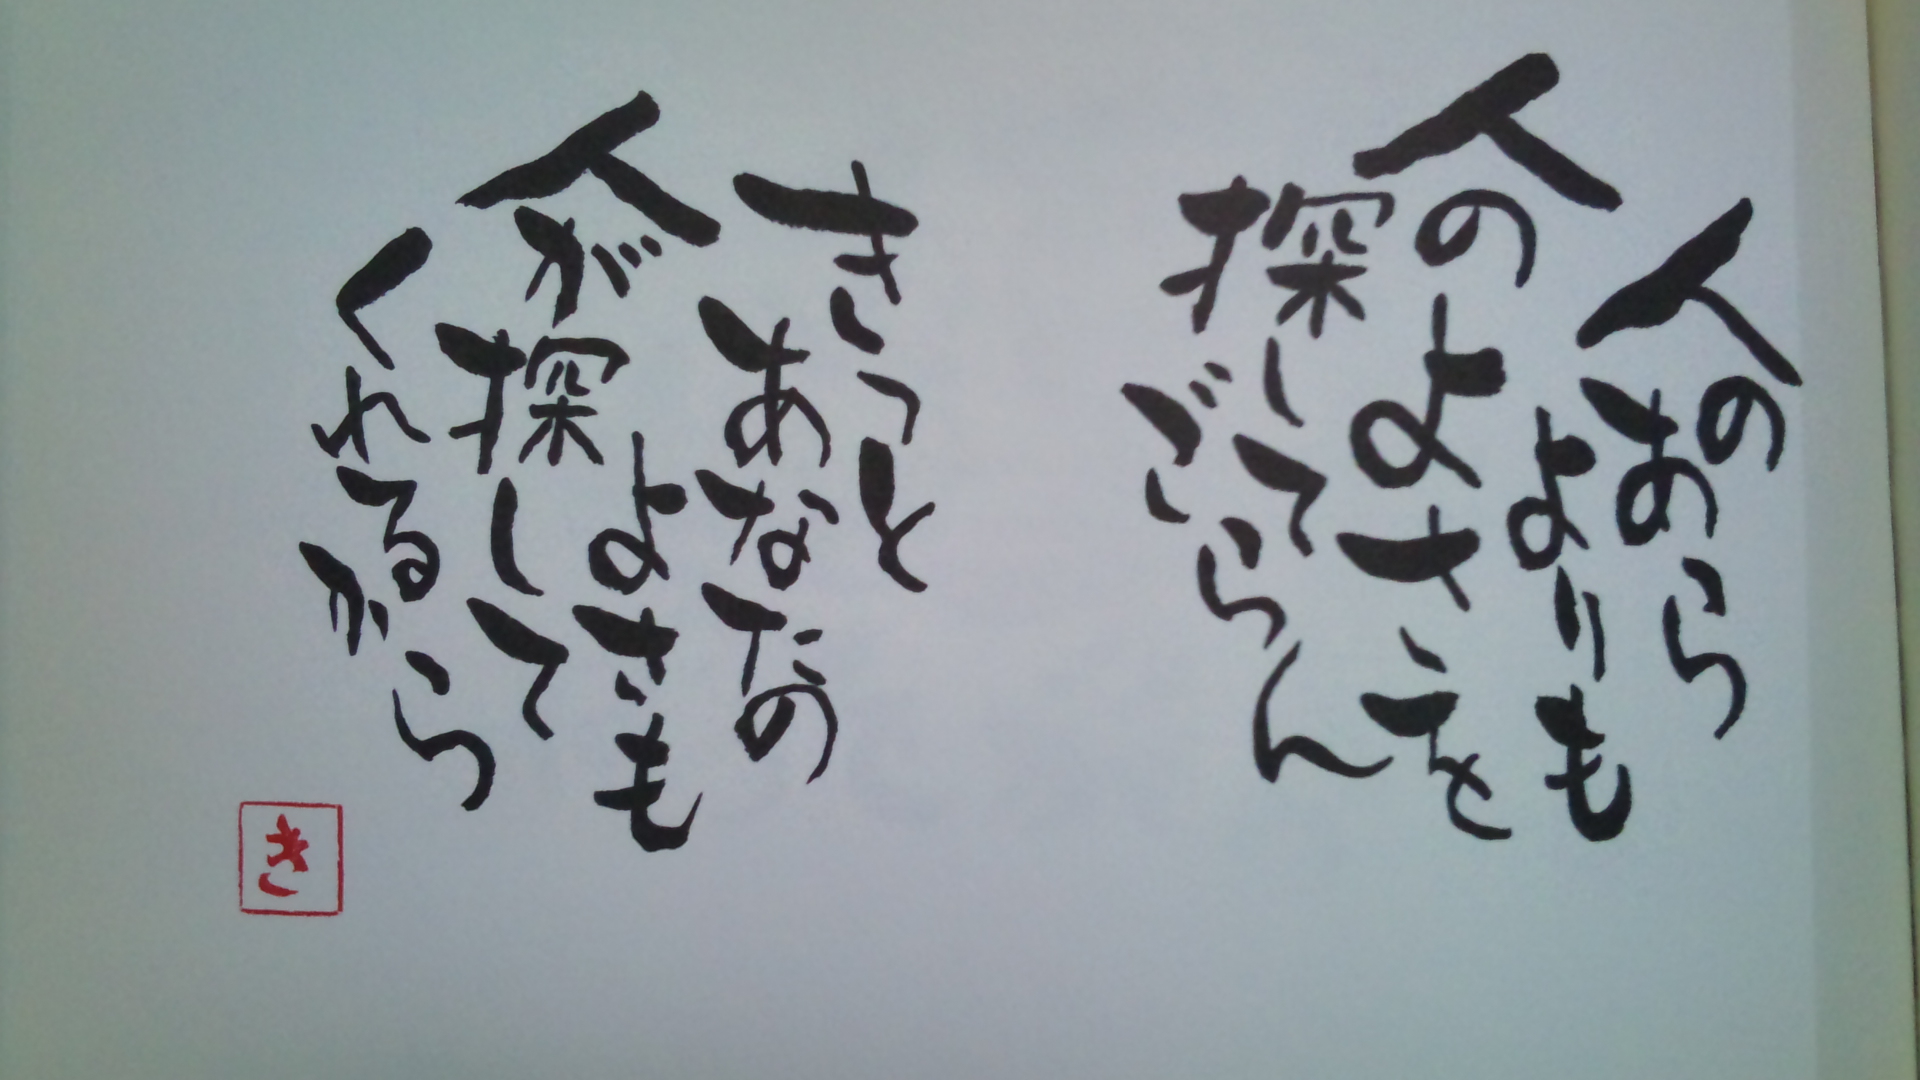 人のあら
よりも
人のよさを
探して
ごらん
きっと
あなたの
よさも
人が探して
くれる
から
き